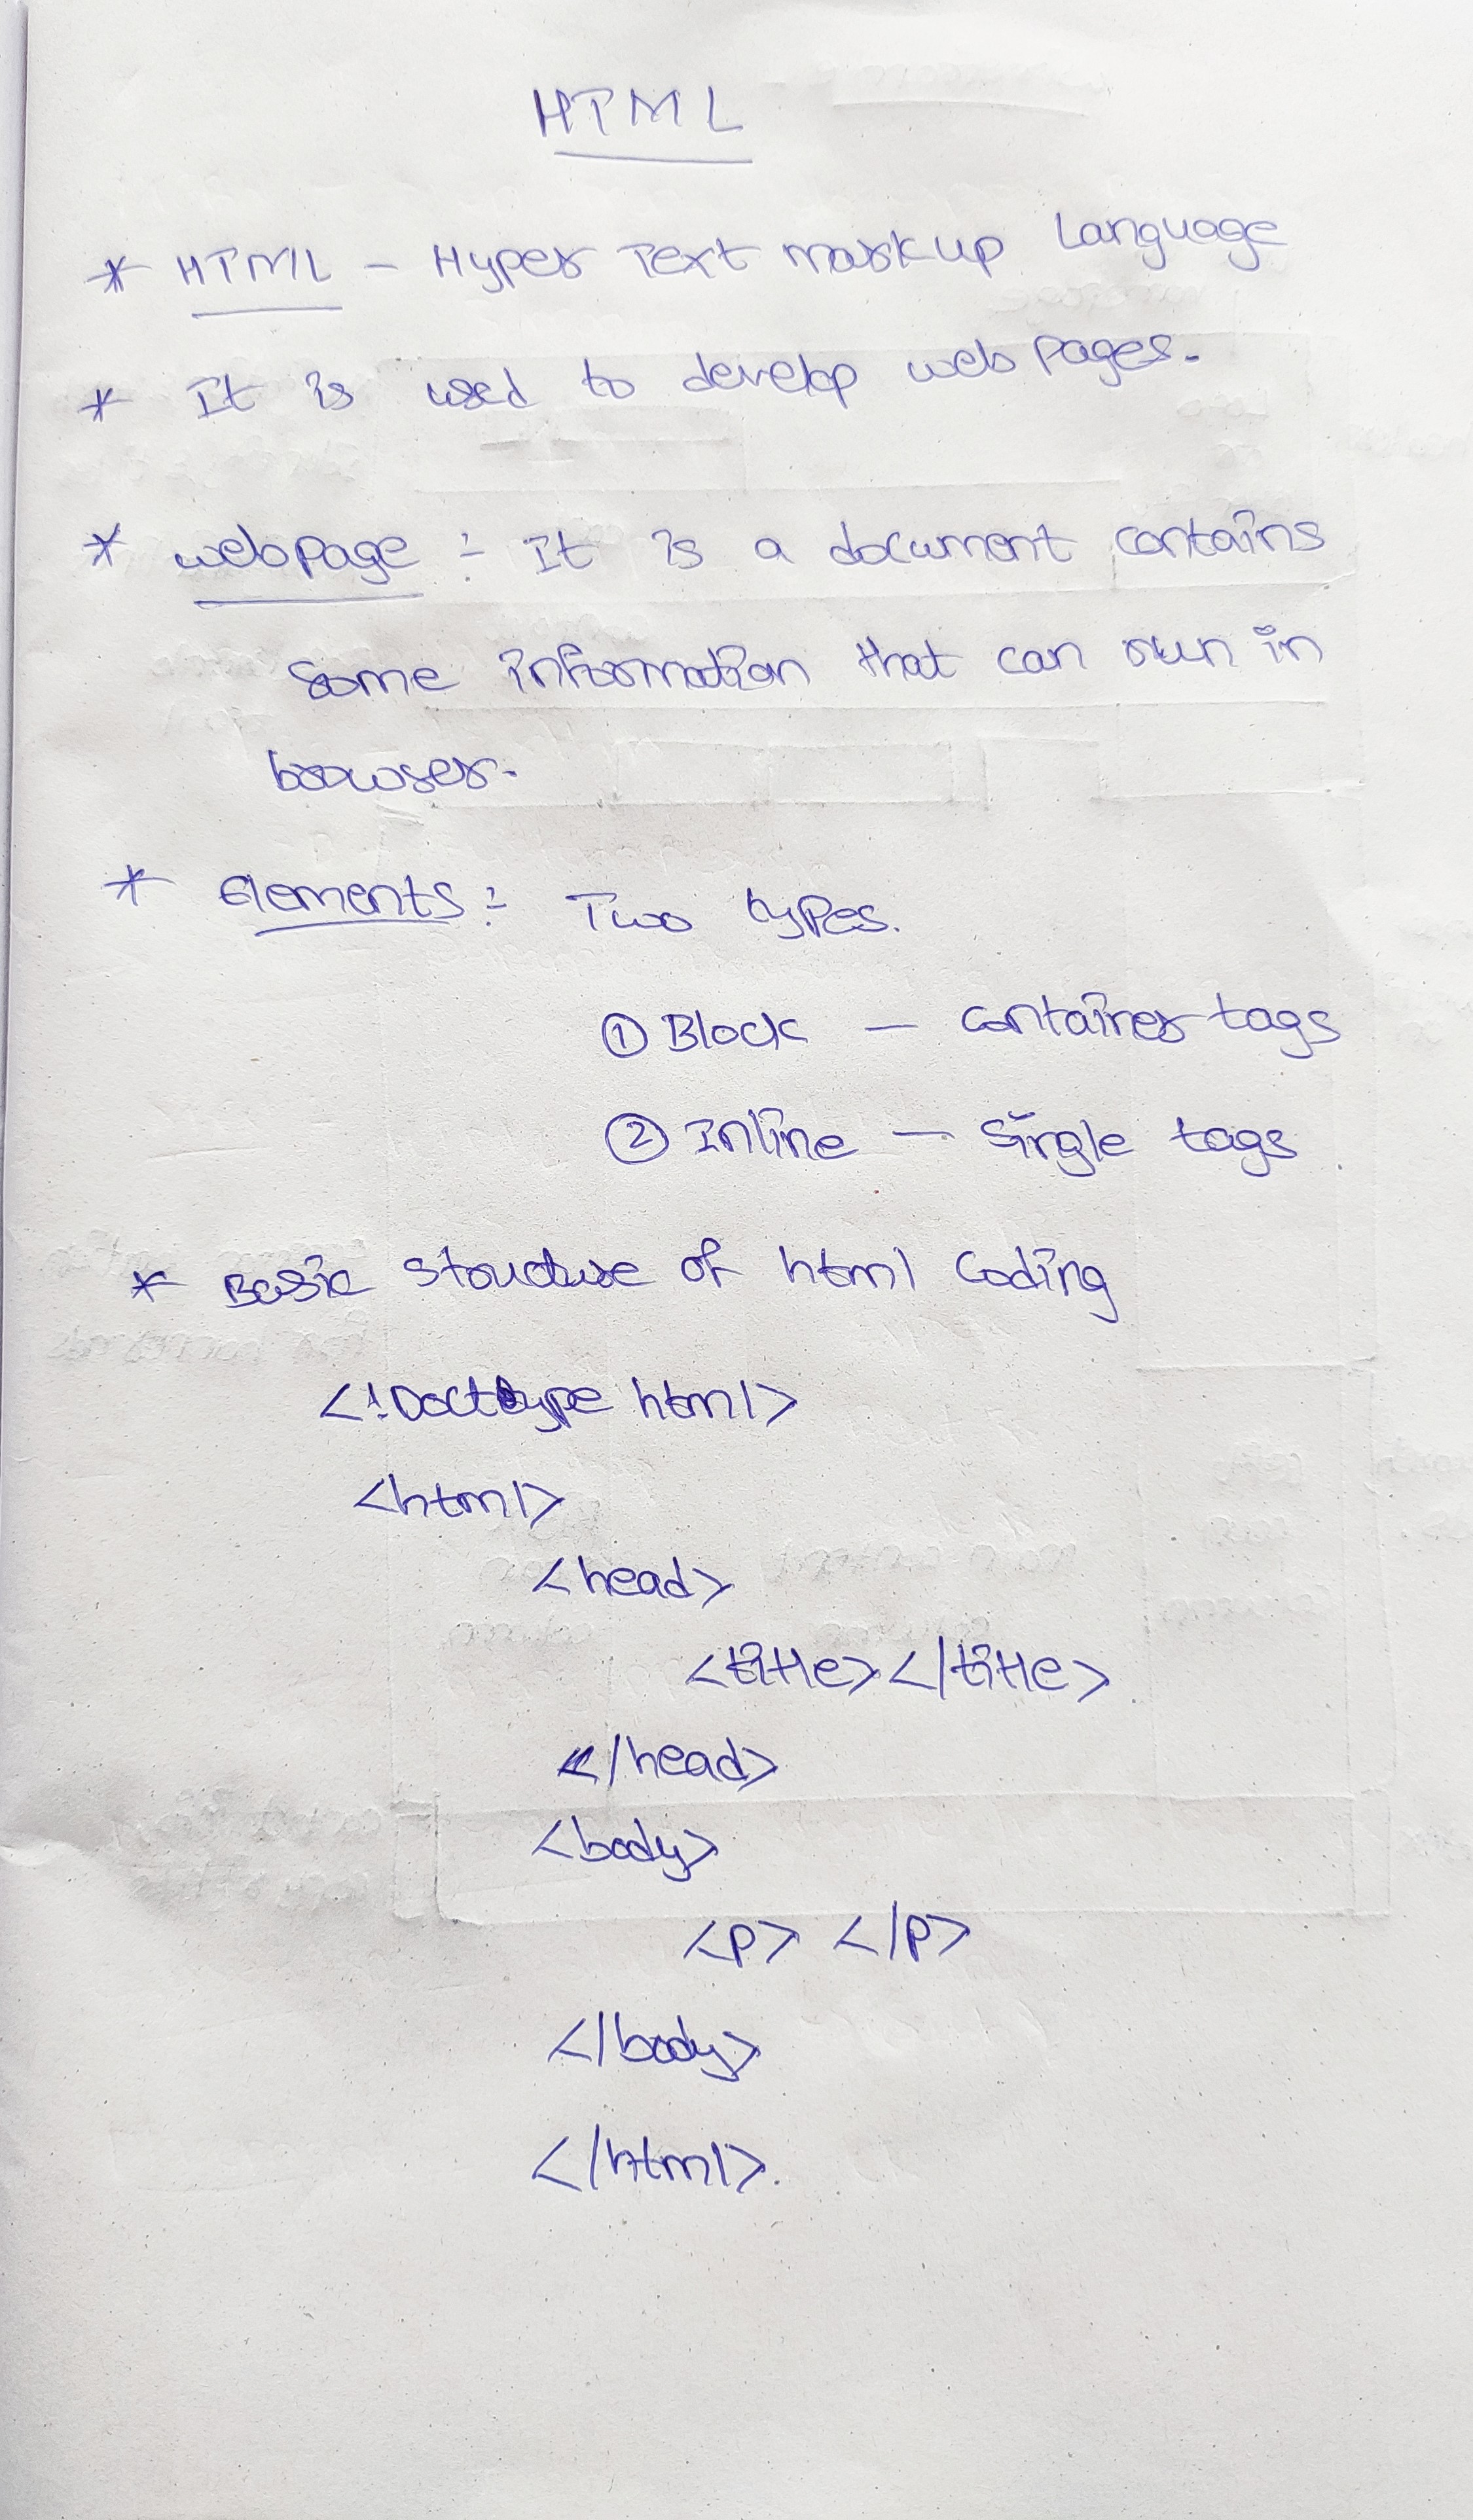 HTML
* HTML - Hyper Text markup Language
* It is used to develop web pages.
* webpage :- It is a document contains
some information that can run in
browser.
* Elements :- Two types.
① Block — container tags
② Inline — single tags
* Basic structure of html coding
<!Doctype html>
<html>
<head>
<title></title>
</head>
<body>
<p> </p>
</body>
</html>.